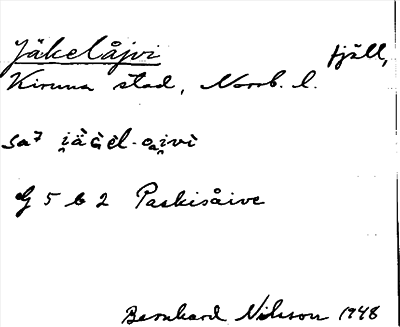 Jäkelåjvi fjäll,
Kiruna stad, Norrb. l.
sa7 i̯ä̀ɢèl-oa̯i̯vì
G 5 b 2 Paskisåive
Bernhard Nilsson 1948